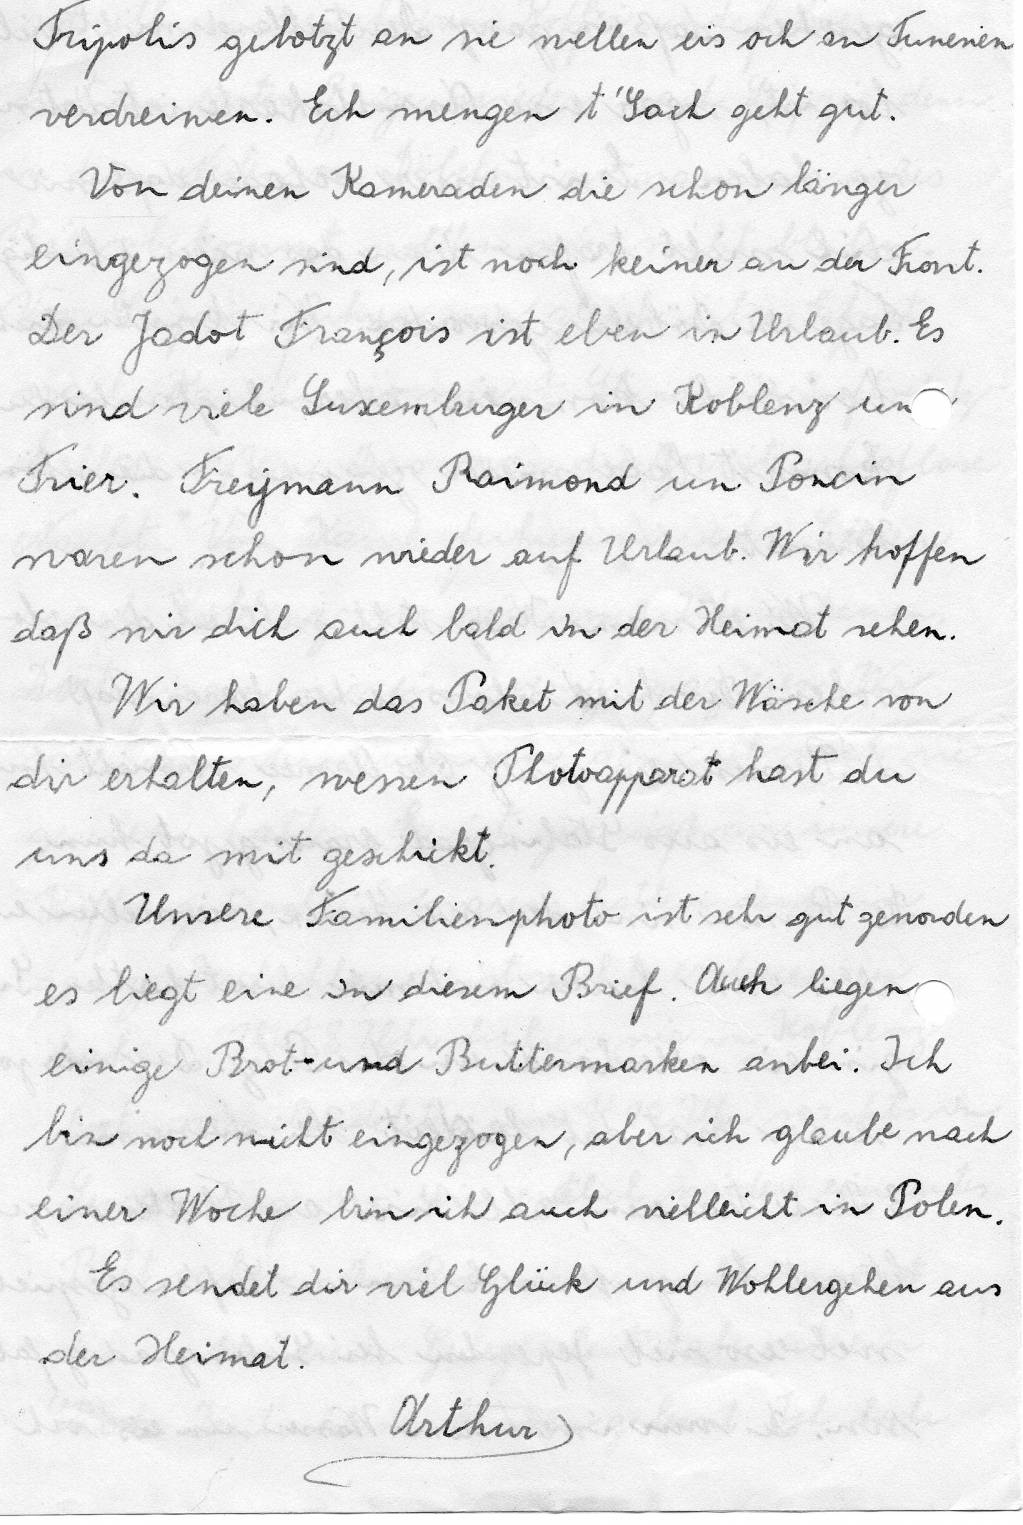 Tripolis gebotzt an sie wellen eis och an Tunesien
verdreiwen. Ech mengen t'Sach geht gut.
Von deinen Kameraden die schon länger
eingezogen sind, ist noch keiner an der Front.
Der Jadot François ist eben in Urlaub. Es
sind viele Luxemburger in Koblenz un
Trier. Freijmann Raimond un Poncin
waren schon wieder auf Urlaub. Wir hoffen
daß wir dich auch bald in der Heimat sehen.
Wir haben das Paket mit der Wäsche von
dir erhalten, wessen Photoapparat hast du
uns da mit geschickt.
Unsere Familienphoto ist sehr gut geworden
es liegt eine in diesem Brief. Auch liegen
einige Brot-und Buttermarken anbei. Ich
bin noch nicht eingezogen, aber ich glaube nach
einer Woche bin ich auch vielleicht in Polen.
Es sendet dir viel Glück und Wohlergehen aus
der Heimat.
Arthur